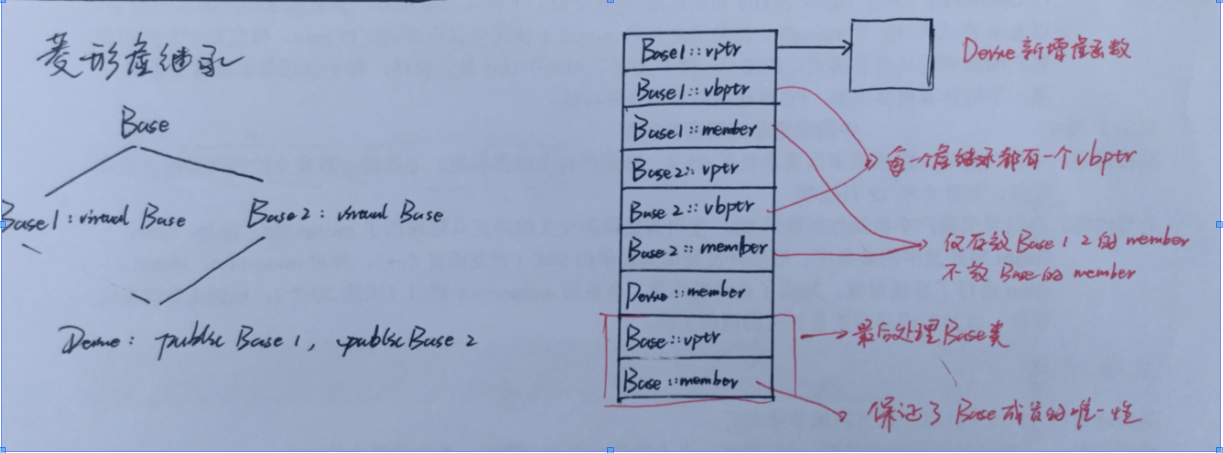 菱形虚继承
Base
Base1 : virtual Base
Base2 : virtual Base
Derive : public Base1, public Base2
Base1::vptr
Base1::vbptr
Base1::member
Base2::vptr
Base2::vbptr
Base2::member
Derive::member
Base::vptr
Base::member
Derive新增虚函数
每一个虚继承都有一个vbptr
仅存放Base 1 2的member
不放Base的member
最后处理Base类
保证了Base成员的唯一性